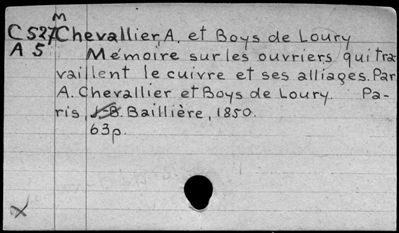 C527M Chevallier, A. et Boys de Loury
A5 Mémoire sur les ouvriers qui tra-
vaillent le cuivre et ses alliages. Par
A. Chevallier et Boys de Loury. Pa-
ris, J.-B. Baillière, 1850.
63p.